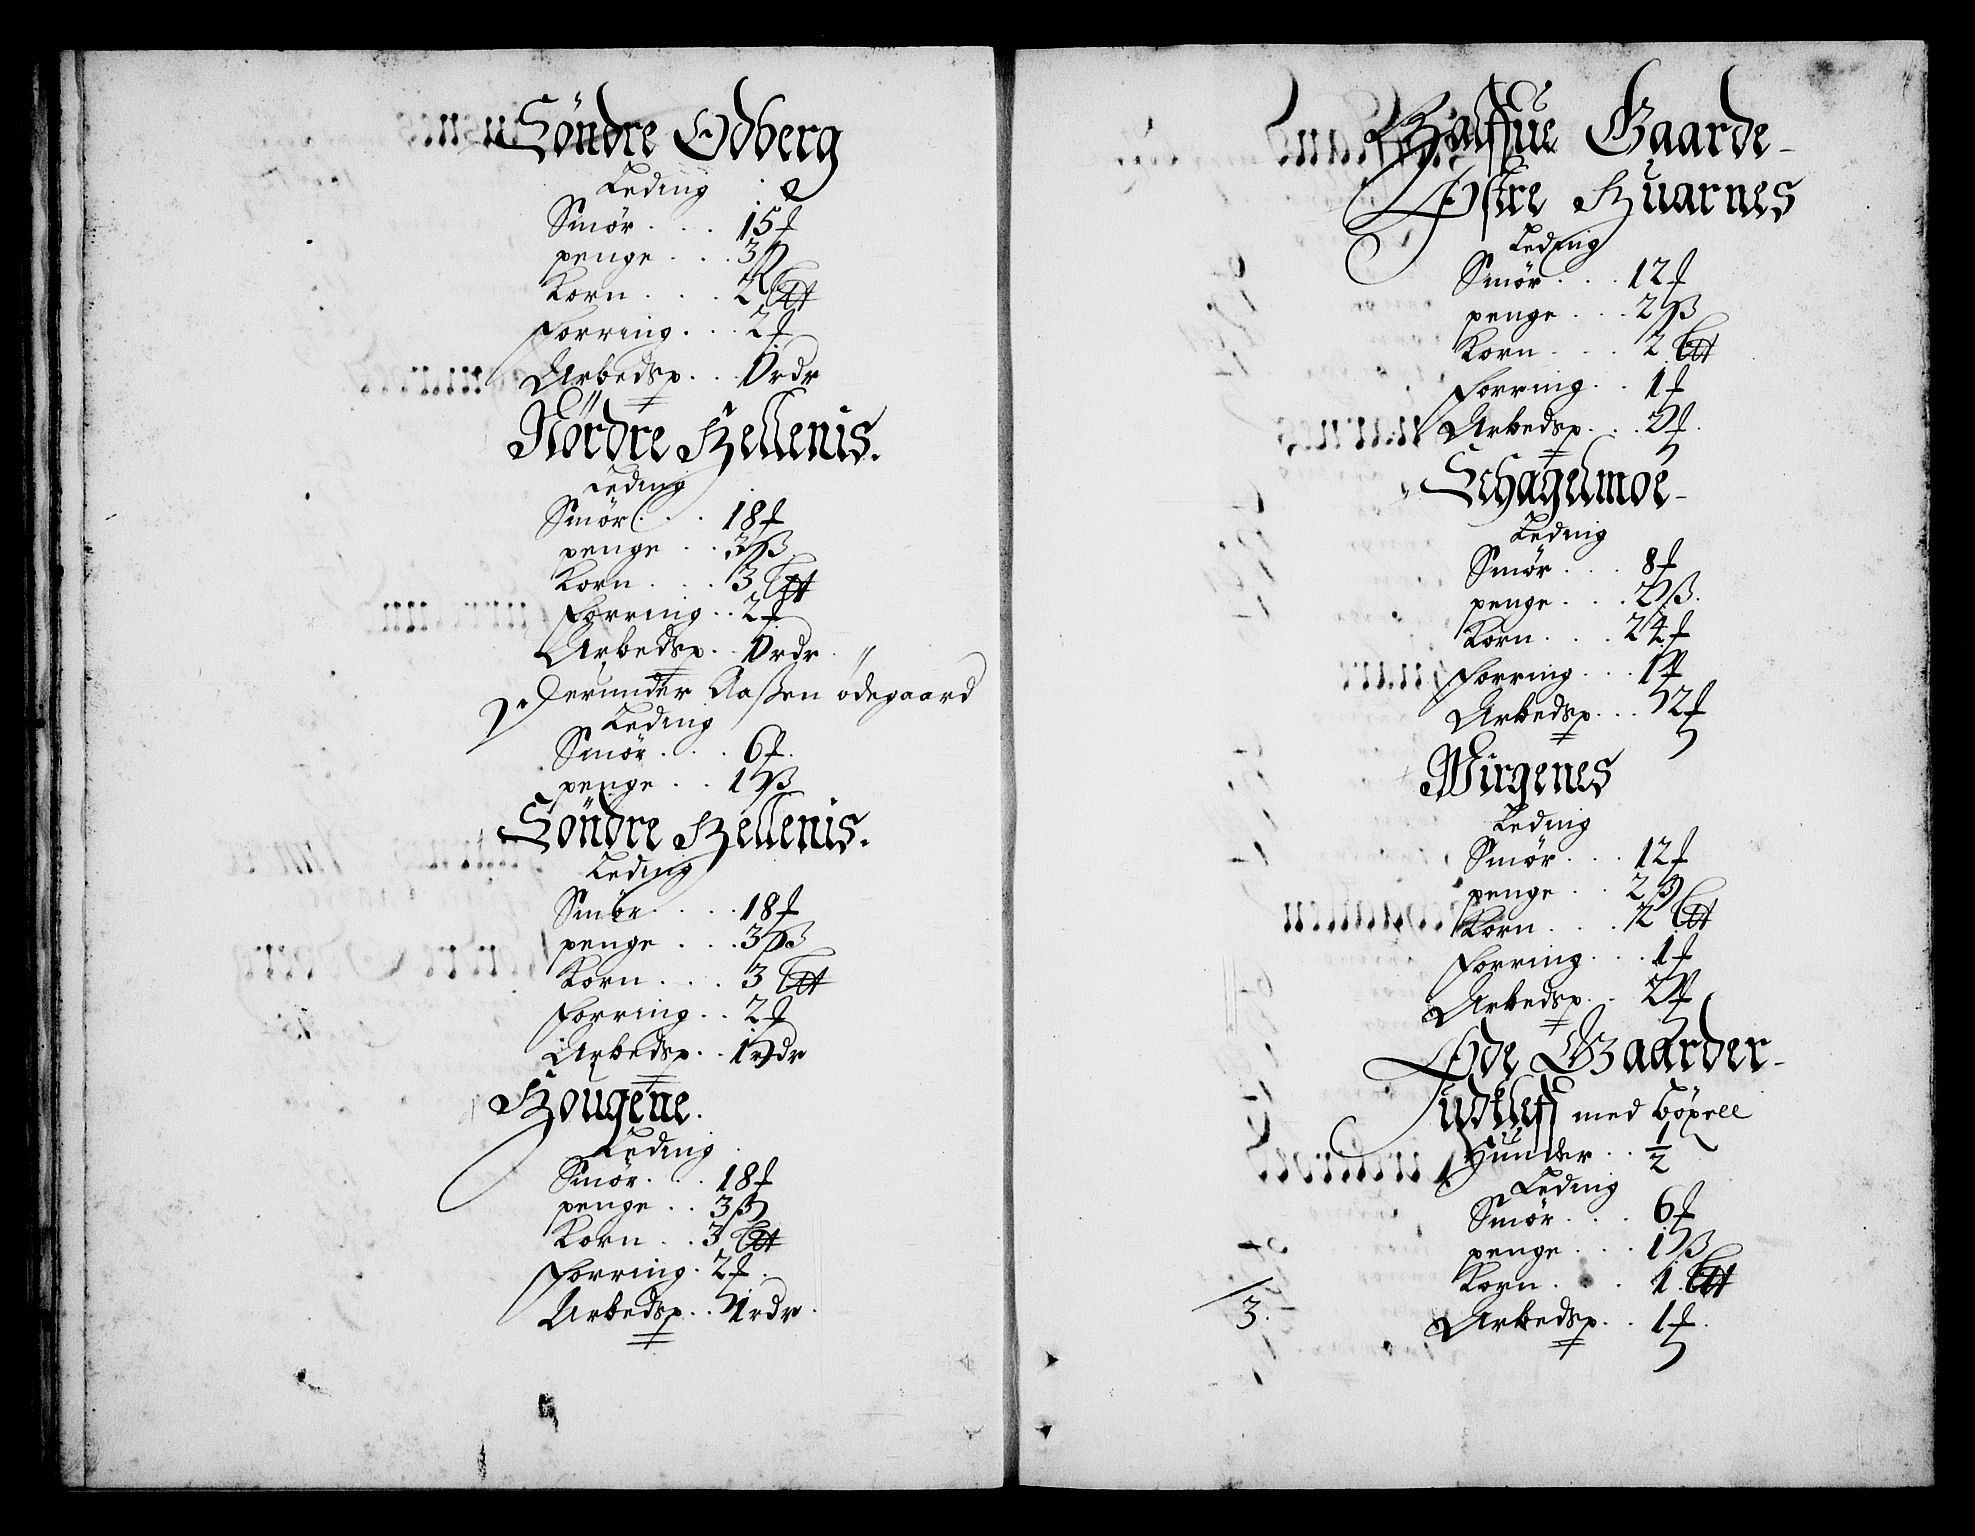 Söndre Odberg
Leding
Smör . . . 15
penge . . . 3 ß
Korn . . . 2
Forring . . . 2
Arbedsp. . . 1 rdr
Nördre Hellenis.
Leding
Smör . . . 18
penge . . . 3 ß
Korn . . . 3
Forring . . 2
Arbedsp. . 1 rdr
Derunder Aaßen ödegaard
Leding
Smör . . . 6
penge . . 1 ß
Söndre Hellenis.
Leding
Smör . . . . 18
penge . . . 3 ß
Korn . . . 3
Forring . . 2
Arbedsp. . . 1 rdr
Hougene.
Leding
Smör . . . 18
penge . . 3 ß
Korn . . 3
Forring . 2
Arbedsp. . . 1 rdr
Halfue Gaarde
Östre Huarnes
Leding
Smör . . . 12
penge . . . 2 ß
Korn . . . 2
Forring . . 1
Arbedsp. . .
Schagelmoe
Leding
Smör . . . 8
penge . . . ß
Korn . . . 24
Forring . . . 1
Arbedsp. . . 2
Wirgenes
Leding
Smör . . . 12
penge . . 2 ß
Korn . . . 2
Forring . . . 1
Arbedsp. . .
Öde Gaarder
Judklef med Böxell
Hünder . . 1/2
Leding
Smör . . . 6
penge . . . 1 ß
Korn . . . 1
Arbedsp. . . 1
3.